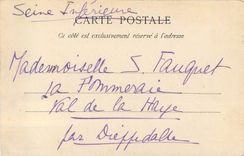 Seine Inférieure
CARTE POSTALE
Ce côté est exclusivement réservé à l'adresse
Mademoiselle S. Fauquet
La Pommeraie
Val de la Haye
par Dieppedalle